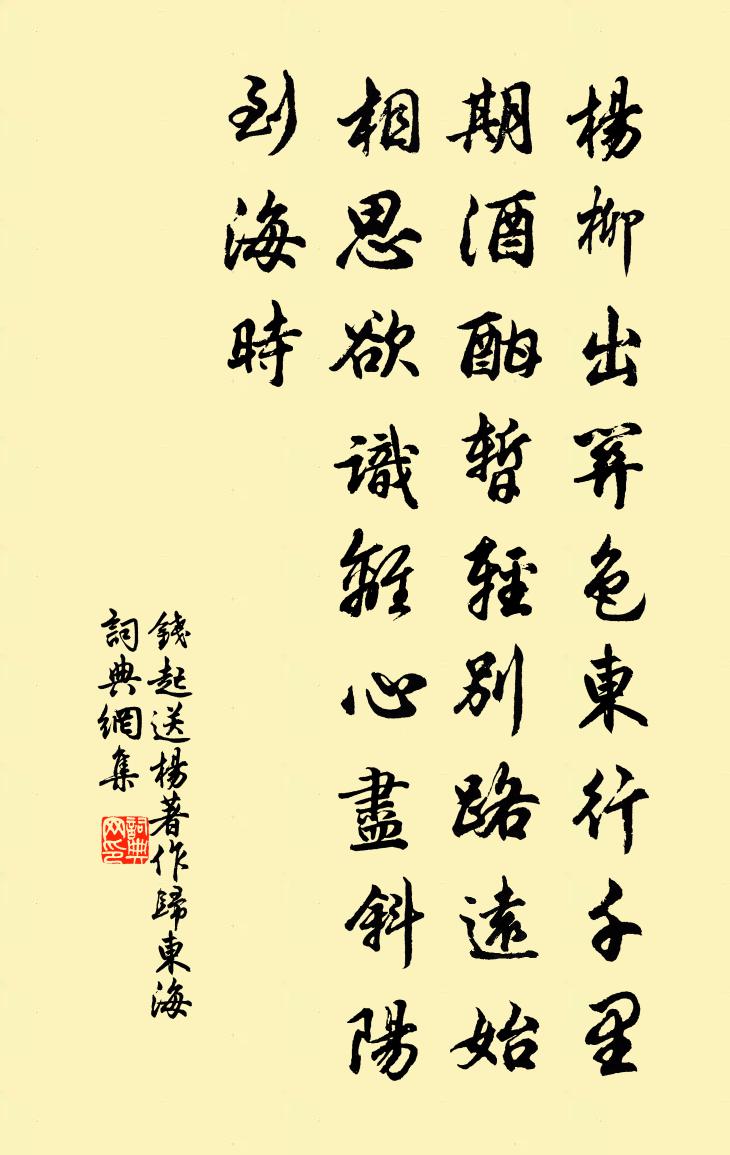 楊柳出關色東行千里
期酒酣暫輕別路遠始
相思欲識離心盡斜陽
到海時
錢起送楊著作歸東海
詞典網集
詞典
网印